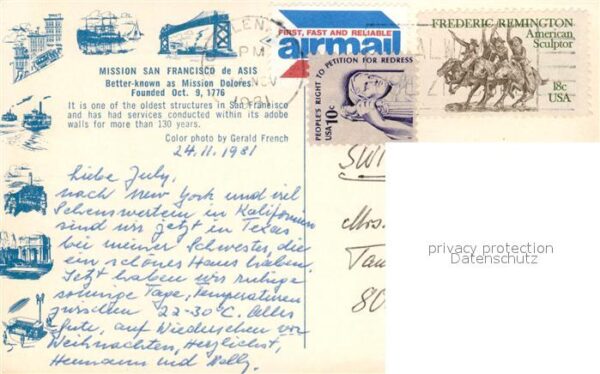 MISSION SAN FRANCISCO de ASIS
Better-known as Mission Dolores.
Founded Oct. 9, 1776
It is one of the oldest structures in San Francisco
and has had services conducted within its adobe
walls for more than 130 years.
Color photo by Gerald French
FIRST, FAST AND RELIABLE
airmail
PEOPLE'S RIGHT TO PETITION FOR REDRESS
USA 10c
FREDERIC REMINGTON
American
Sculptor
18c
USA
PM
NOV
24.11.1981
Liebe July,
nach New York und viel
Sehenswertem in Kalifornien
sind wir jetzt in Texas
bei meiner Schwester, die
ein schönes Haus haben.
Jetzt haben wir ruhige
sonnige Tage, Temperaturen
zwischen 22-30°C. Alles
Gute, auf Wiedersehen vor
Weihnachten, Herzlichst,
Hermann und Nelly.
SWI
Mrs.
Tan
80
privacy protection
Datenschutz